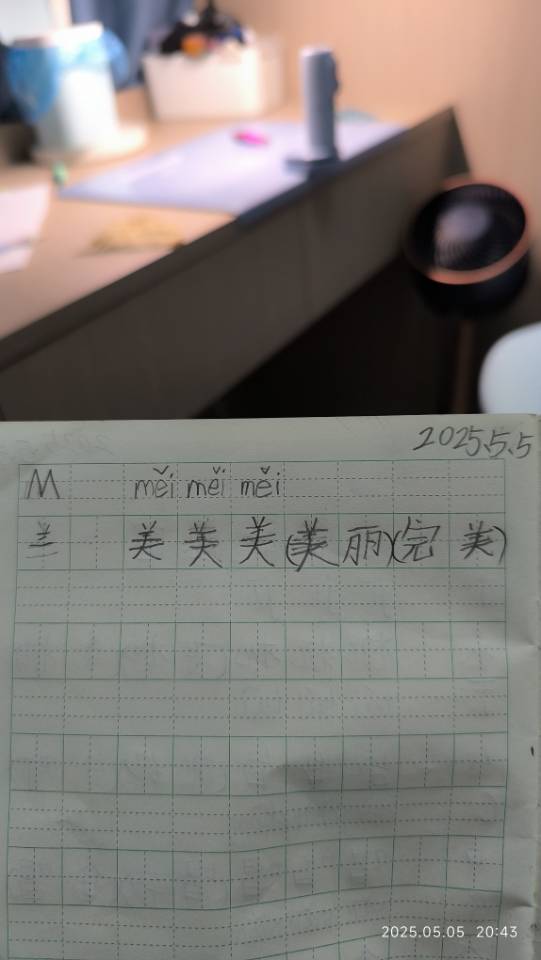 2025.5.5
M měi měi měi
𦍌 美 美 美 (美 丽) (完 美)
2025.05.05 20:43